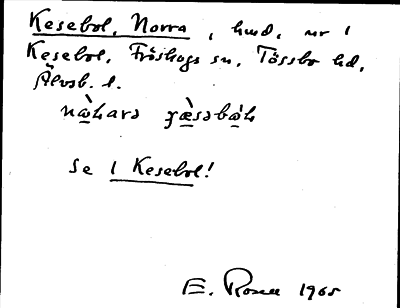 Kesebol, Norra, hmd. nr 1
Kesebol, Fröskogs sn, Tössbo hd,
Älvsb. l.
Se 1 Kesebol!
E. Rosell 1965